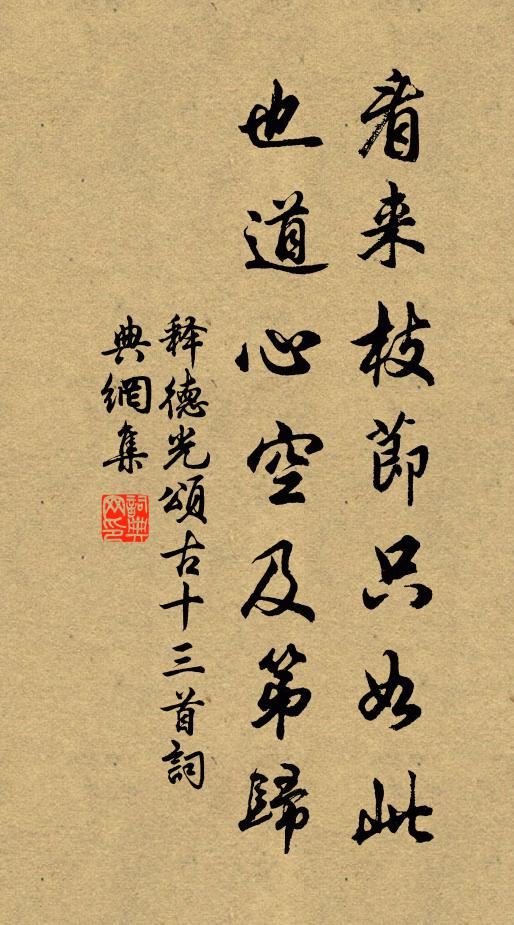 看来枝節只如此
也道心空及第歸
释德光頌古十三首詞
典網集
詞典
网印